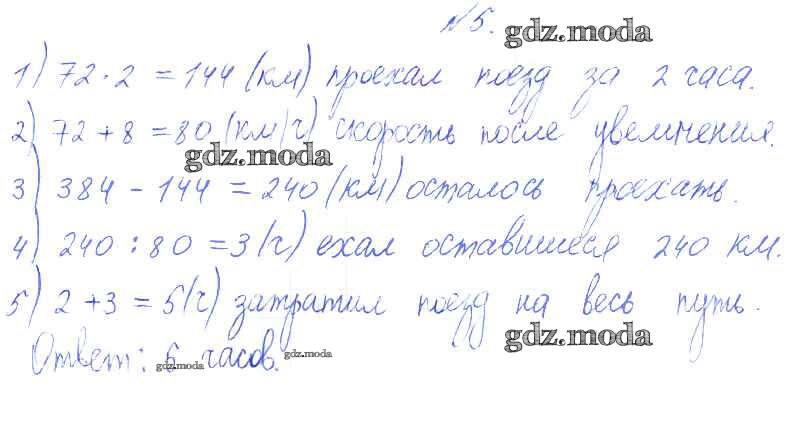 №5. gdz.moda
1) 72 · 2 = 144 (км) проехал поезд за 2 часа.
2) 72 + 8 = 80 (км/ч) скорость после увеличения.
gdz.moda
3) 384 - 144 = 240 (км) осталось проехать.
4) 240 : 80 = 3 (ч) ехал оставшиеся 240 км.
5) 2 + 3 = 5 (ч) затратил поезд на весь путь.
gdz.moda
Ответ: 5 часов.
gdz.moda gdz.moda